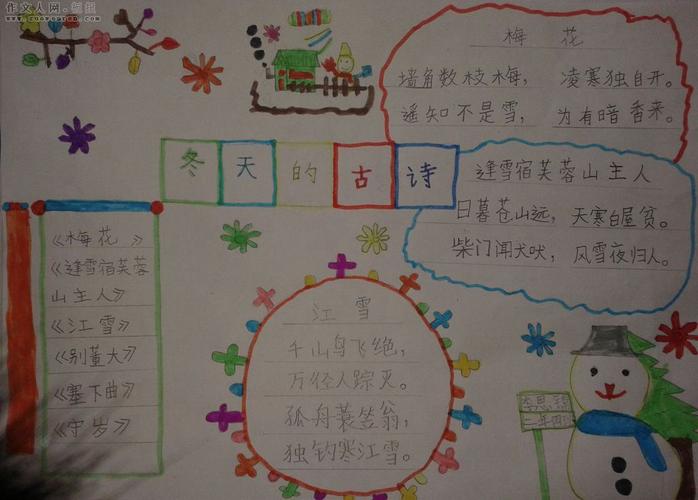 作文人网
www.zuowenren.com
梅 花
墙角数枝梅， 凌寒独自开。
遥知不是雪， 为有暗香来。
冬天的古诗
逢雪宿芙蓉山主人
日暮苍山远， 天寒白屋贫。
柴门闻犬吠， 风雪夜归人。
《梅花》
《逢雪宿芙蓉
山主人》
《江雪》
《别董大》
《塞下曲》
《守岁》
江 雪
千山鸟飞绝，
万径人踪灭。
孤舟蓑笠翁，
独钓寒江雪。
李思
二年四